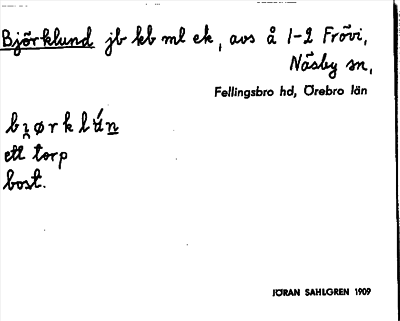 Björklund jb kb ml ek, avs å 1-2 Frövi,
Näsby sn,
Fellingsbro hd, Örebro län
ett torp
bost.
JÖRAN SAHLGREN 1909